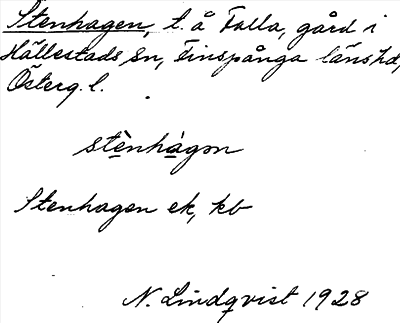 Stenhagen, t. å Falla, gård i
Hällestads sn, Finspånga läns hd,
Österg. l.
stènhàgən
Stenhagen ek, kb
N. Lindqvist 1928